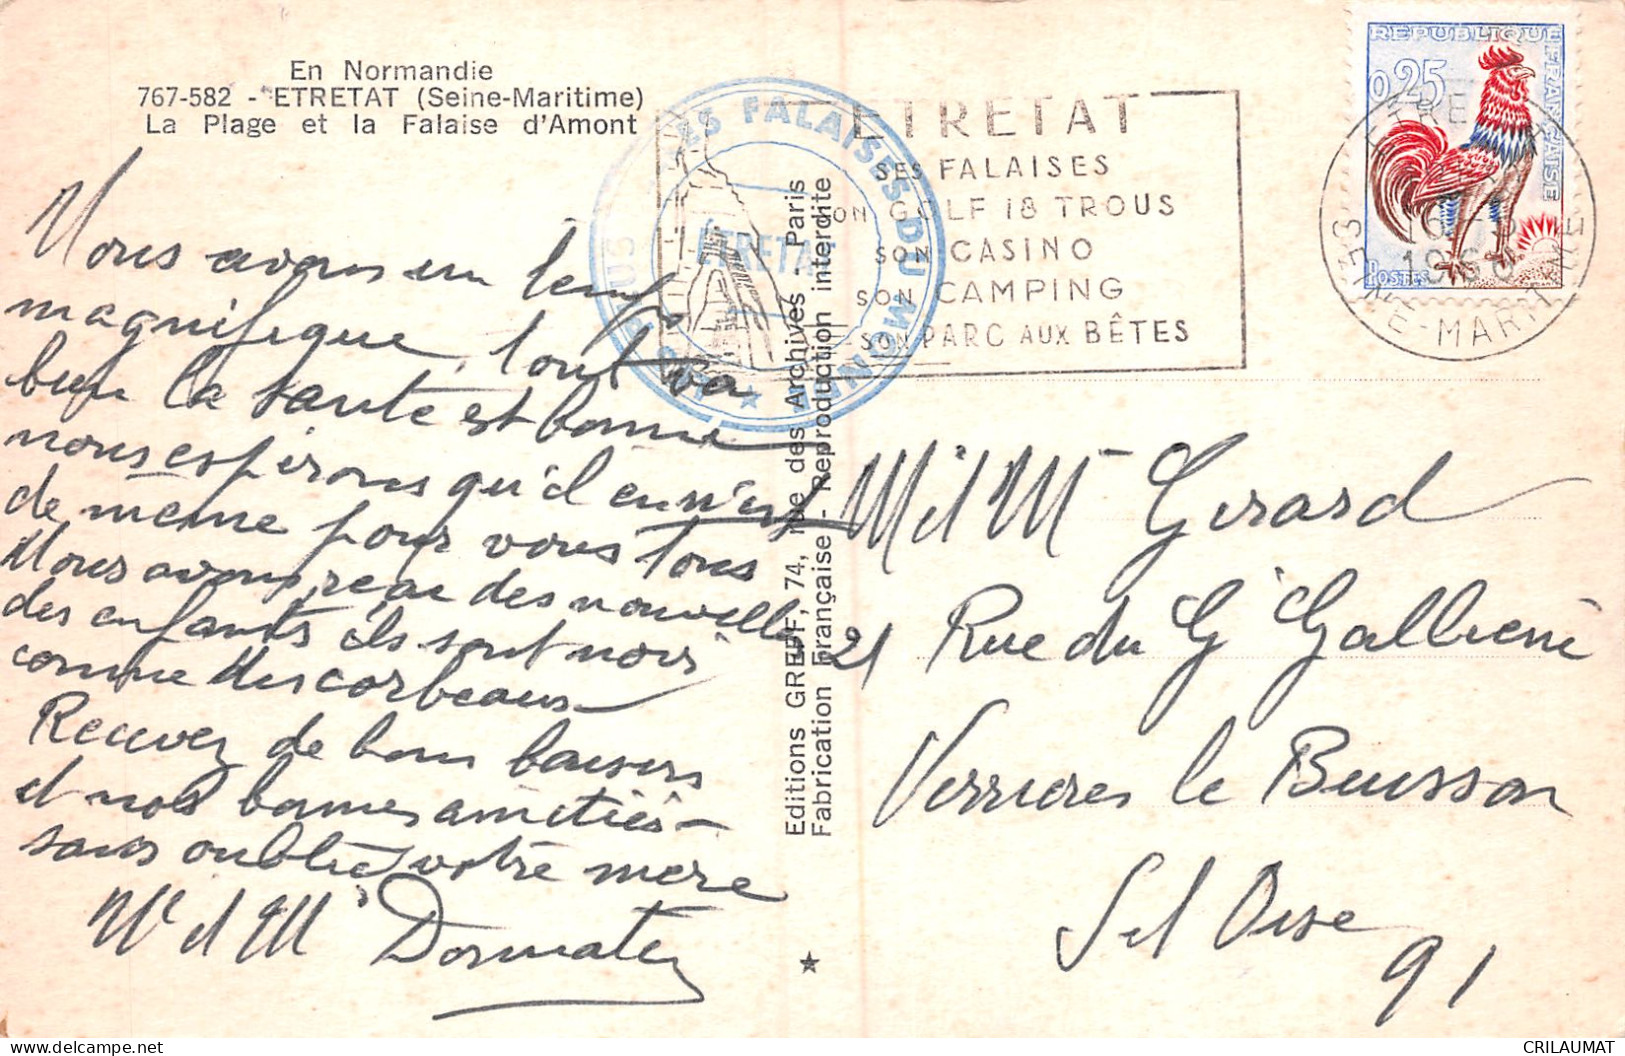 En Normandie
767-582 - ETRETAT (Seine-Maritime)
La Plage et la Falaise d'Amont
Nous avons un temps
magnifique, tout va
bien la santé est bonne
nous espérons qu'il en n'est
de même pour vous tous
Nous avons reçu des nouvelles
des enfants ils sont noirs
comme des corbeaux
Recevez de bons baisers
et nos bonnes amitiés
sans oublier votre mère
Mr et Mme
LES FALAISES DU MONDE
ETRETAT
ETRETAT
SES FALAISES
SON GOLF 18 TROUS
SON CASINO
SON CAMPING
SON PARC AUX BÊTES
REPUBLIQUE FRANÇAISE
0,25
POSTES
ETRETAT
SEINE-MARITIME
Editions GREFF, 74, rue des Archives - Paris
Fabrication Française - Reproduction interdite
M et Mme Girard
21 Rue du Gl Gallieni
Verrieres le Buisson
S et Oise
91
CRILAUMAT